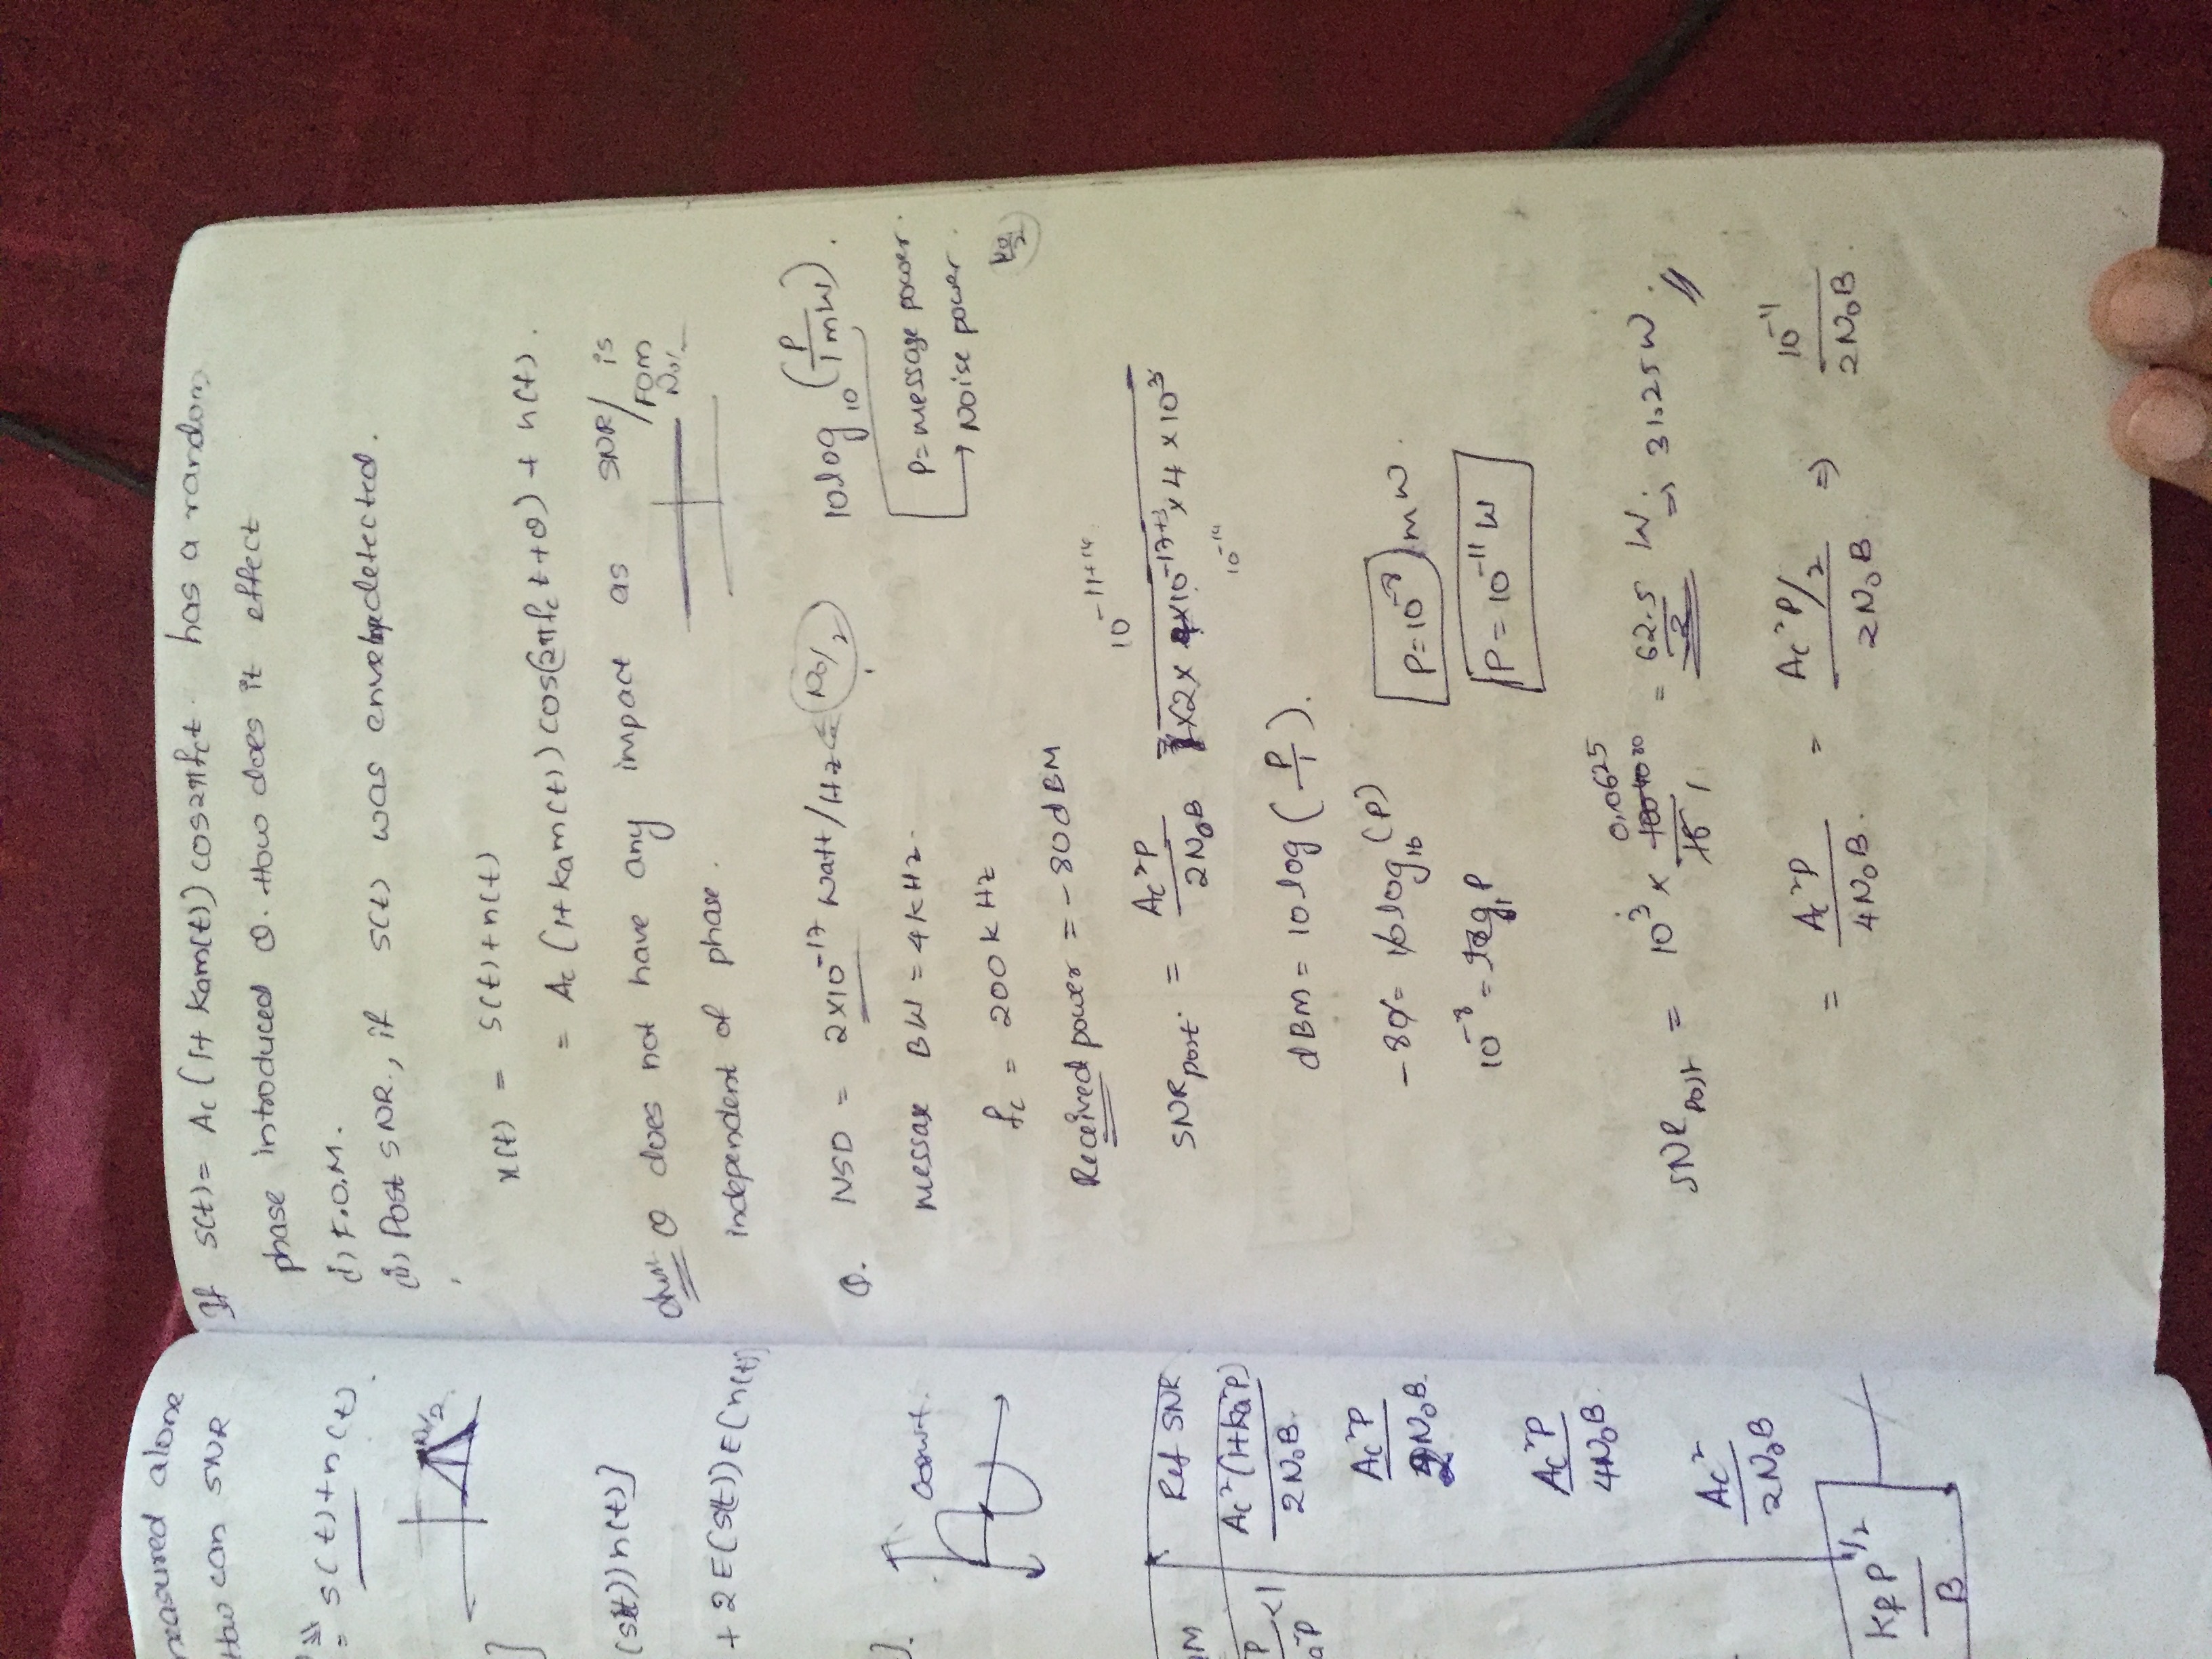 measured alone
How can SNR
= s(t)+n(t)
N0/2
]
(s(t))n(t)]
+ 2E(s(t))E(n(t))
].
coswt.
OM
Ref SNR
P
<1
Ac²(1+Ka²P)
2N₀B.
a²P
Ac²P
2N₀B.
Ac²P
4N₀B.
Ac²
2N₀B
Kf P^1/2
B
If s(t) = Ac (1+ Kam(t)) cos2πfct. has a random
phase introduced θ. How does it effect
(i) F.O.M.
(ii) Post SNR., if s(t) was envelope detected.
x(t) = s(t)+n(t)
= Ac (1+Kam(t)) cos(2πfc t+θ) + n(t).
θ does not have any impact as SNR/FOM is
independent of phase.
N0/
Q. NSD = 2x10^-17 Watt/Hz ⇐ N0/2
10log10 (P/1mW).
message BW = 4KHz.
P= message power.
→ Noise power.
N0/2
fc = 200 k Hz
Received power = -80dBM
SNR post. = Ac²P / 2N₀B = 10^-11+14 / 1x2x 2x10^-17+3 x 4 x 10³
10^-14
dBM = 10 log (P/1).
-80 = 10log10 (P)
P=10^-8 mW.
10^-8 = log P
P = 10^-11 W
SNR post = 10³ x 0.0625 / 1 = 62.5/2 W. ⇒ 31.25W.
= Ac²P / 4N₀B. = Ac²P/2 / 2N₀B ⇒ 10^-11 / 2N₀B.